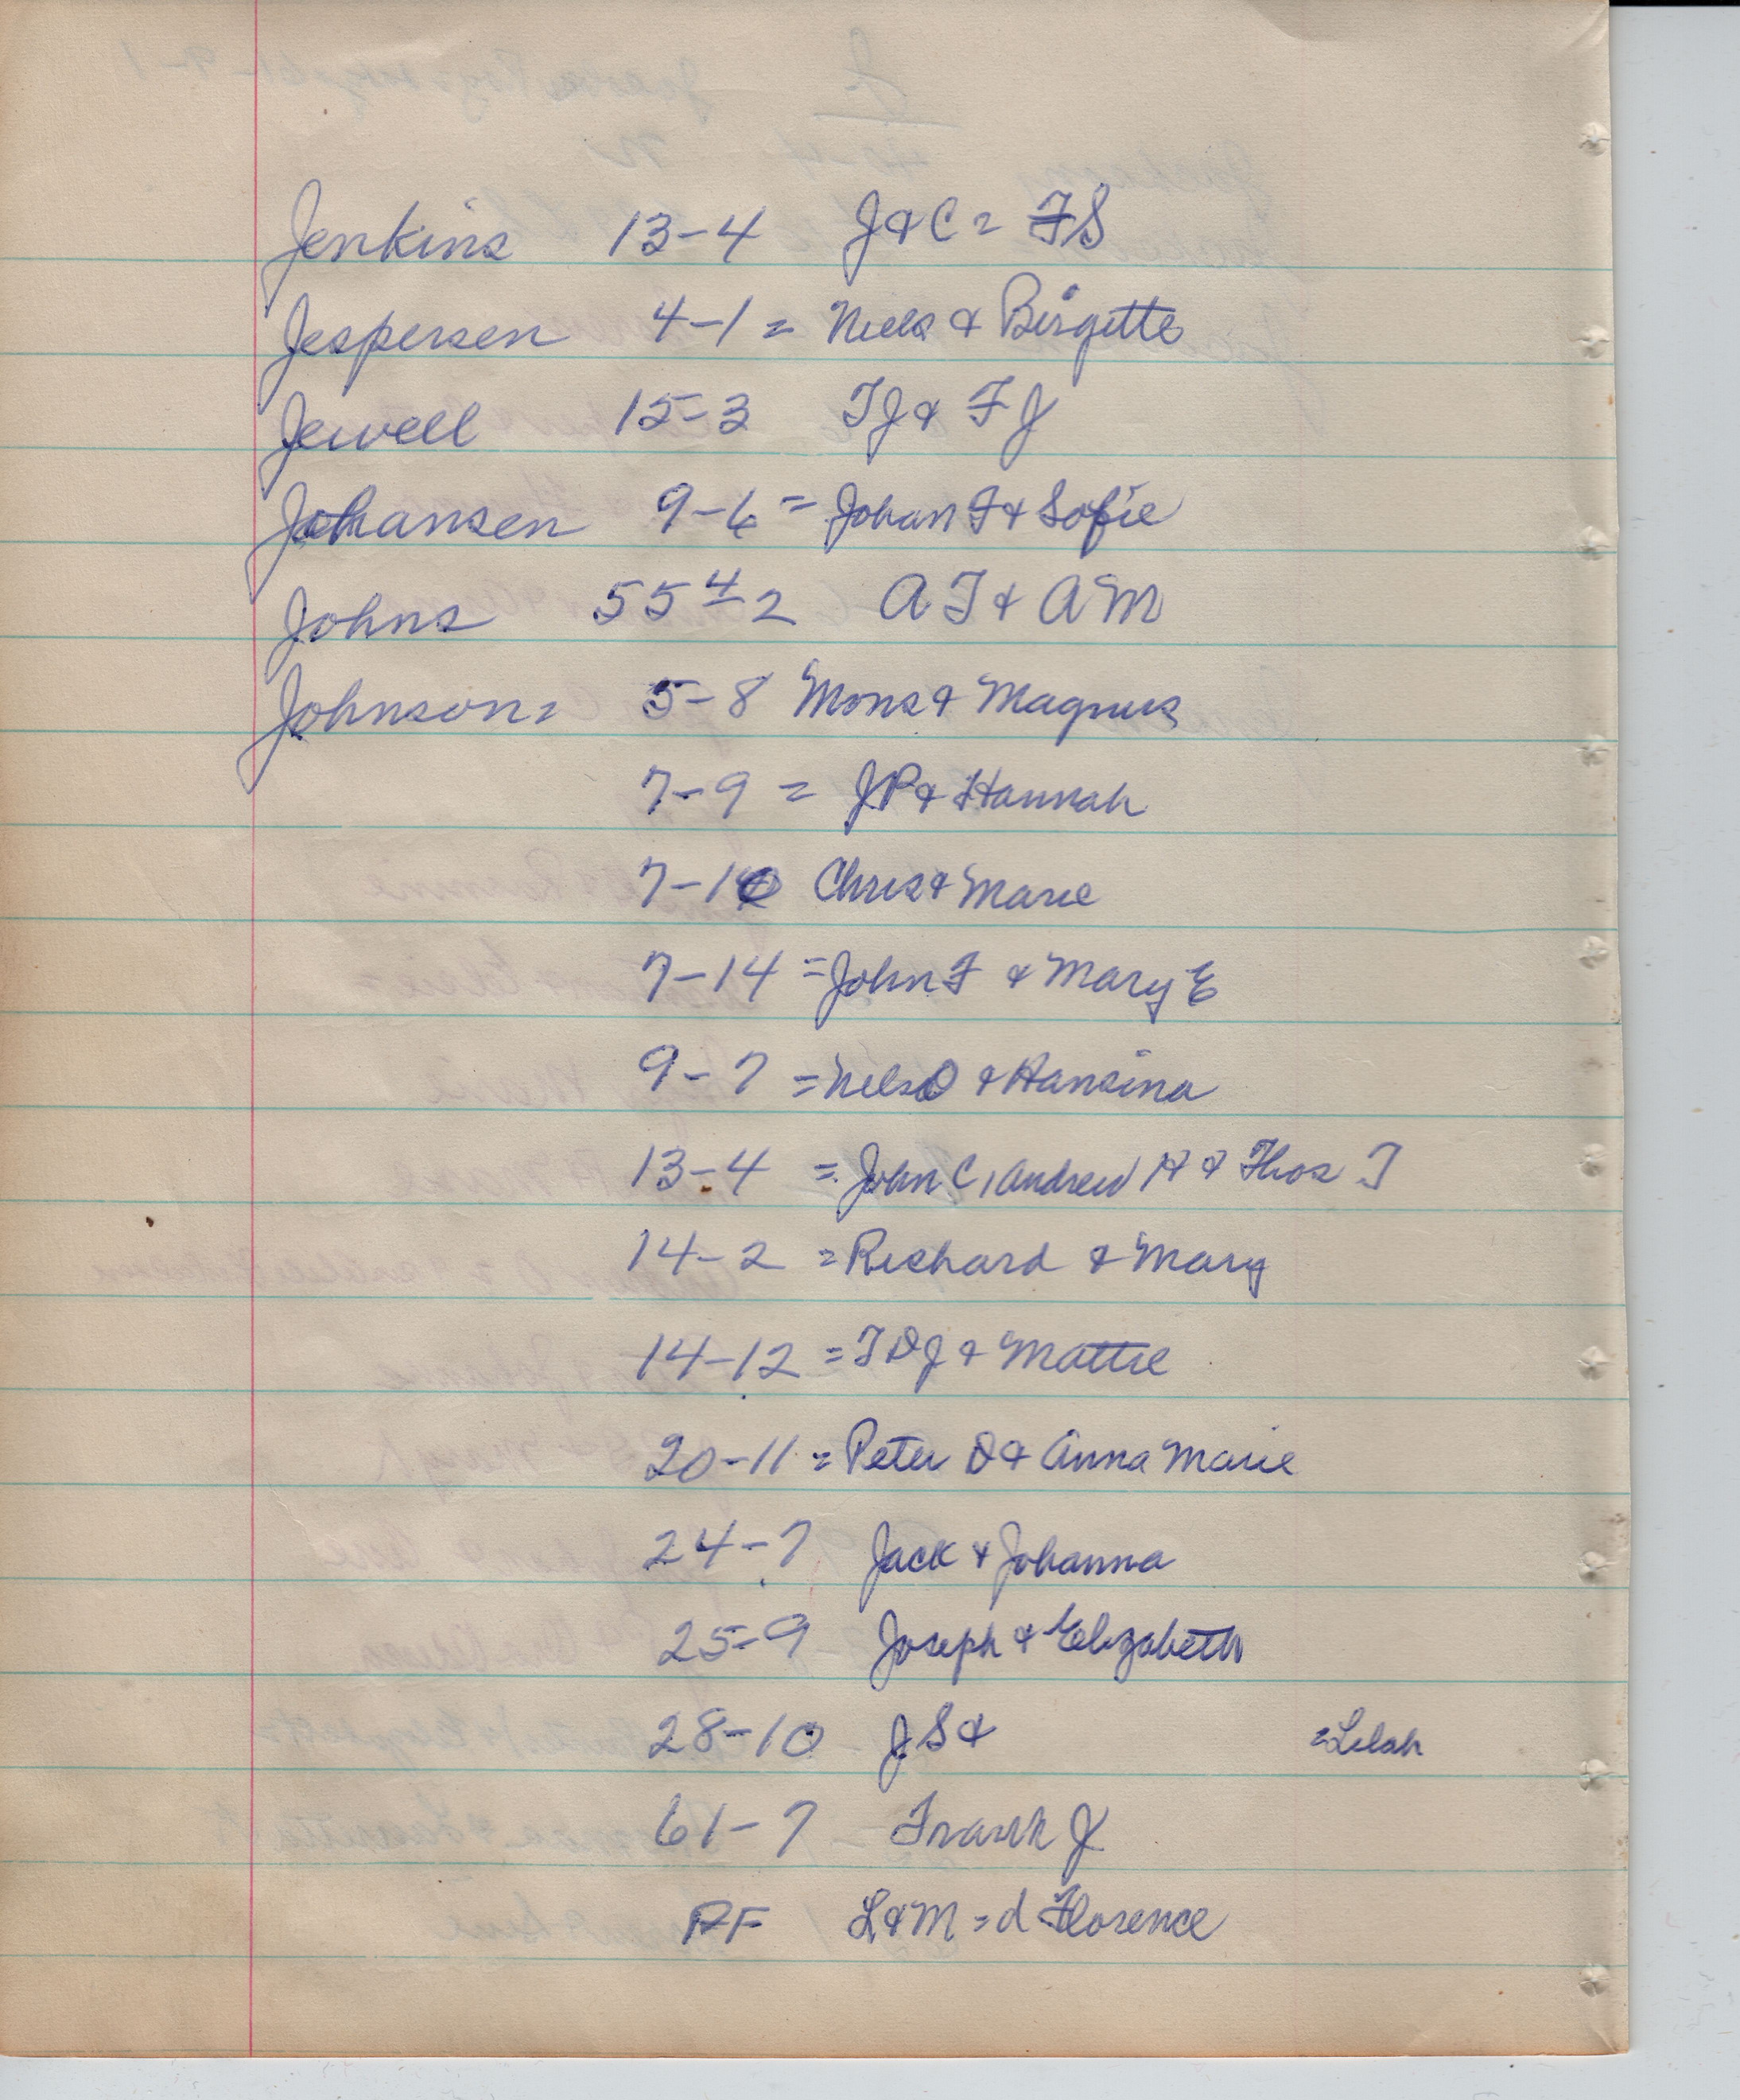 Jenkins 13-4 J & C = FS
Jespersen 4-1 = Niels & Birgitte
Jewell 15-3 TJ & FJ
Johansen 9-6 = Johan F & Sofie
Johns 55 4-2 AT & AM
Johnson = 5-8 Mons & Magnus
7-9 = JP & Hannah
7-10 Chris & Marie
7-14 = John F & Mary E
9-7 = Nels O & Hansina
13-4 = John C, Andrew H & Thos T
14-2 = Richard & Mary
14-12 = TDJ & Mattie
20-11 = Peter O & Anna Marie
24-7 Jack & Johanna
25-9 Joseph & Elizabeth
28-10 JS & = Lilah
61-7 Frank J
PF L & M = d Florence